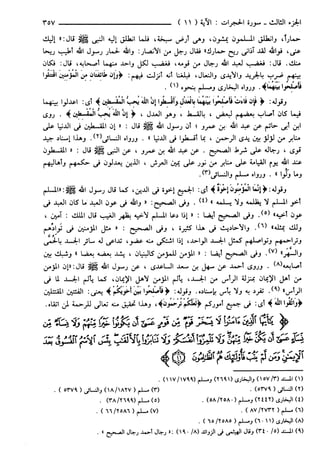 الجزء الثالث - سورة الحجرات: الآية (١١) ٣٥٧
حماراً، وانطلق المسلمون يمشون، وهى أرض سبخة، فلما انطلق إليه النبى ﷺ قال: «إليك
عنى، فوالله لقد آذانى ريح حمارك» فقال رجل من الأنصار: والله لحمار رسول الله أطيب ريحا
منك. قال: فغضب لعبد الله رجال من قومه، فغضب لكل واحد منهما أصحابه، قال: فكان
بينهم ضرب بالجريد والأيدى والنعال، فبلغنا أنه أنزلت فيهم: ﴿وَإِن طَائِفَتَانِ مِنَ الْمُؤْمِنِينَ اقْتَتَلُوا
فَأَصْلِحُوا بَيْنَهُمَا﴾. ورواه البخارى ومسلم بنحوه (١).
وقوله: ﴿فَإِن فَاءَتْ فَأَصْلِحُوا بَيْنَهُمَا بِالْعَدْلِ وَأَقْسِطُوا إِنَّ اللَّهَ يُحِبُّ الْمُقْسِطِينَ﴾ أى: اعدلوا بينهما
فيما كان أصاب بعضهم لبعض، بالقسط، وهو العدل، ﴿إِنَّ اللَّهَ يُحِبُّ الْمُقْسِطِينَ﴾. روى
ابن أبى حاتم عن عبد الله بن عمرو؛ أن رسول الله ﷺ قال: «إن المقسطين فى الدنيا على
منابر من لؤلؤ بين يدى الرحمن، بما أقسطوا فى الدنيا». ورواه النسائى (٢). وهذا إسناد جيد
قوى، رجاله على شرط الصحيح. عن عبد الله بن عمرو، عن النبى ﷺ قال: «المقسطون
عند الله يوم القيامة على منابر من نور على يمين العرش، الذين يعدلون فى حكمهم وأهاليهم
وما ولوا». ورواه مسلم والنسائى (٣).
وقوله: ﴿إِنَّمَا الْمُؤْمِنُونَ إِخْوَةٌ﴾ أى: الجميع إخوة فى الدين، كما قال رسول الله ﷺ: «المسلم
أخو المسلم لا يظلمه ولا يسلمه» (٤). وفى الصحيح: «والله فى عون العبد ما كان العبد فى
عون أخيه» (٥). وفى الصحيح أيضا: «إذا دعا المسلم لأخيه بظهر الغيب قال الملك: آمين،
ولك بمثله» (٦). والأحاديث فى هذا كثيرة، وفى الصحيح: «مثل المؤمنين فى توادهم
وتراحمهم وتواصلهم كمثل الجسد الواحد، إذا اشتكى منه عضو، تداعى له سائر الجسد بالحُمَّى
والسَّهَر» (٧). وفى الصحيح أيضا: «المؤمن للمؤمن كالبنيان، يشد بعضه بعضا» وشبك بين
أصابعه (٨). وروى أحمد عن سهل بن سعد الساعدى، عن رسول الله ﷺ قال: «إن المؤمن
من أهل الإيمان بمنزلة الرأس من الجسد، يألم المؤمن لأهل الإيمان، كما يألم الجسد لما فى
الرأس» (٩). تفرد به ولا بأس بإسناده. وقوله: ﴿فَأَصْلِحُوا بَيْنَ أَخَوَيْكُمْ﴾ يعنى: الفئتين المقتتلتين
﴿وَاتَّقُوا اللَّهَ﴾ أى: فى جميع أموركم ﴿لَعَلَّكُمْ تُرْحَمُونَ﴾، وهذا تحقيق منه تعالى للرحمة لمن اتقاه.
﴿يَا أَيُّهَا الَّذِينَ آمَنُوا لَا يَسْخَرْ قَوْمٌ مِّن قَوْمٍ عَسَى أَن يَكُونُوا خَيْرًا مِّنْهُمْ وَلَا نِسَاءٌ مِّن نِّسَاءٍ عَسَى
أَن يَكُنَّ خَيْرًا مِّنْهُنَّ وَلَا تَلْمِزُوا أَنفُسَكُمْ وَلَا تَنَابَزُوا بِالْأَلْقَابِ بِئْسَ الِاسْمُ الْفُسُوقُ بَعْدَ
الْإِيمَانِ وَمَن لَّمْ يَتُبْ فَأُولَئِكَ هُمُ الظَّالِمُونَ﴾
(١) المسند (٣/١٥٧) والبخارى (٢٦٩١) ومسلم (١١٧/١٧٩٩).
(٢) النسائى (٥٣٧٩). (٣) مسلم (١٨/١٨٢٧) والنسائى (٥٣٧٩).
(٤) البخارى (٢٤٤٢) ومسلم (٥٨/٢٥٨٠). (٥) مسلم (٣٨/٢٦٩٩).
(٦) مسلم (٨٧/٢٧٣٢). (٧) مسلم (٦٦/٢٥٨٦).
(٨) البخارى (٦٠١١) ومسلم (٦٥/٢٥٨٥).
(٩) المسند (٥/٣٤٠) وقال الهيثمى فى الزوائد (٨/١٩٠): «رجال أحمد رجال الصحيح».